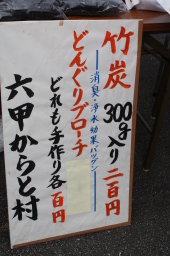 竹炭 300g入り 二百円
消臭・浄水効果バツグン
どんぐりブローチ
どれも手作り各百円
六甲からと村